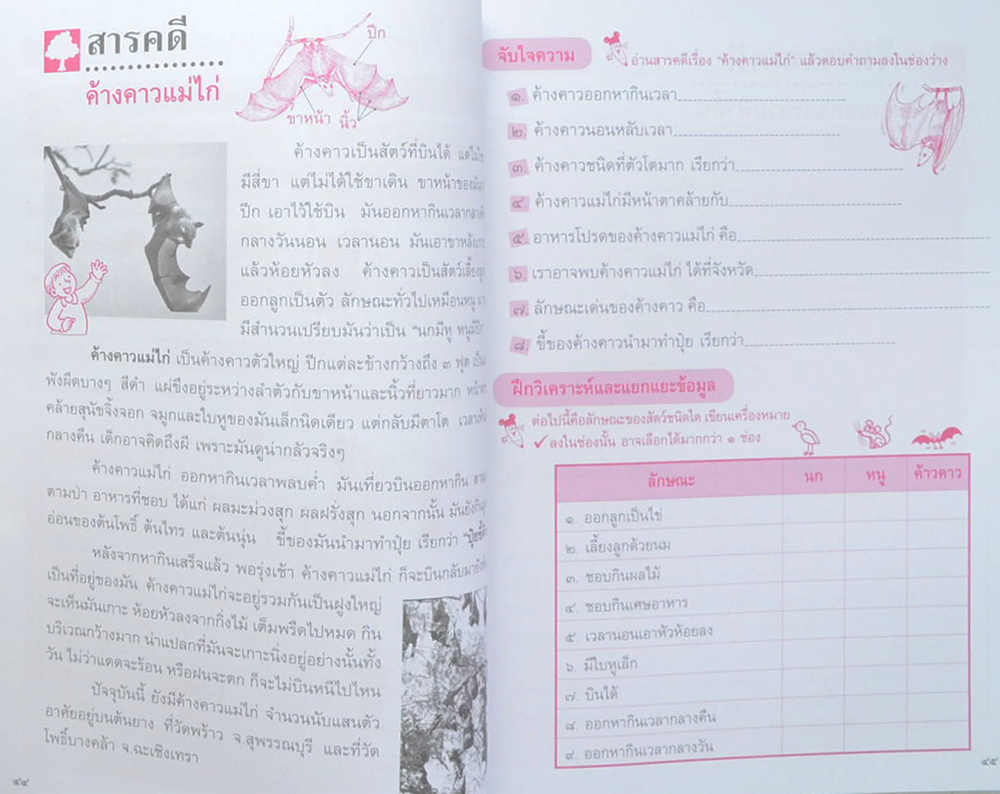 สารคดี
ค้างคาวแม่ไก่
ปีก
ขาหน้า
นิ้ว
ค้างคาวเป็นสัตว์ที่บินได้
มีสี่ขา แต่ไม่ได้ใช้ขาเดิน ขาหน้าของมัน
ปีก เอาไว้ใช้บิน มันออกหากินเวลา
กลางวันนอน เวลานอน มันเอาขาหลัง
แล้วห้อยหัวลง ค้างคาวเป็นสัตว์
ออกลูกเป็นตัว ลักษณะทั่วไปเหมือนหนู
มีสำนวนเปรียบมันว่าเป็น "นกมีหู หนูมีปีก"
ค้างคาวแม่ไก่ เป็นค้างคาวตัวใหญ่ ปีกแต่ละข้างกว้างถึง ๓ ฟุต เป็น
พังผืดบางๆ สีดำ แผ่ขึงอยู่ระหว่างลำตัวกับขาหน้าและนิ้วที่ยาวมาก
คล้ายสุนัขจิ้งจอก จมูกและใบหูของมันเล็กนิดเดียว แต่กลับมีตาโต
กลางคืน เด็กอาจคิดถึงผี เพราะมันดูน่ากลัวจริงๆ
ค้างคาวแม่ไก่ ออกหากินเวลาพลบค่ำ มันเที่ยวบินออกหากิน
ตามป่า อาหารที่ชอบ ได้แก่ ผลมะม่วงสุก ผลฝรั่งสุก นอกจากนั้น มันยัง
อ่อนของต้นโพธิ์ ต้นไทร และต้นนุ่น ขี้ของมันนำมาทำปุ๋ย เรียกว่า
หลังจากหากินเสร็จแล้ว พอรุ่งเช้า ค้างคาวแม่ไก่ ก็จะบินกลับมา
เป็นที่อยู่ของมัน ค้างคาวแม่ไก่จะอยู่รวมกันเป็นฝูงใหญ่
จะเห็นมันเกาะ ห้อยหัวลงจากกิ่งไม้ เต็มพรืดไปหมด กิน
บริเวณกว้างมาก น่าแปลกที่มันจะเกาะนิ่งอยู่อย่างนั้นทั้ง
วัน ไม่ว่าแดดจะร้อน หรือฝนจะตก ก็จะไม่บินหนีไปไหน
ปัจจุบันนี้ ยังมีค้างคาวแม่ไก่ จำนวนนับแสนตัว
อาศัยอยู่บนต้นยาง ที่วัดพร้าว จ.สุพรรณบุรี และที่วัด
โพธิ์บางคล้า จ.ฉะเชิงเทรา
๔๔
จับใจความ
อ่านสารคดีเรื่อง "ค้างคาวแม่ไก่" แล้วตอบคำถามลงในช่องว่าง
๑. ค้างคาวออกหากินเวลา
๒. ค้างคาวนอนหลับเวลา
๓. ค้างคาวชนิดที่ตัวโตมาก เรียกว่า
๔. ค้างคาวแม่ไก่มีหน้าตาคล้ายกับ
๕. อาหารโปรดของค้างคาวแม่ไก่ คือ
๖. เราอาจพบค้างคาวแม่ไก่ ได้ที่จังหวัด
๗. ลักษณะเด่นของค้างคาว คือ
๘. ขี้ของค้างคาวนำมาทำปุ๋ย เรียกว่า
ฝึกวิเคราะห์และแยกแยะข้อมูล
ต่อไปนี้คือลักษณะของสัตว์ชนิดใด เขียนเครื่องหมาย
✓ ลงในช่องนั้น อาจเลือกได้มากกว่า ๑ ช่อง
ลักษณะ นก หนู ค้าวคาว
๑. ออกลูกเป็นไข่
๒. เลี้ยงลูกด้วยนม
๓. ชอบกินผลไม้
๔. ชอบกินเศษอาหาร
๕. เวลานอนเอาหัวห้อยลง
๖. มีใบหูเล็ก
๗. บินได้
๘. ออกหากินเวลากลางคืน
๙. ออกหากินเวลากลางวัน
๔๕